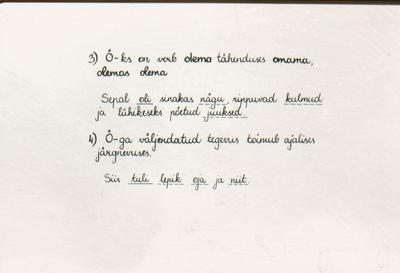 3) Ö-ks on verb olema tähenduses omama,
olemas olema
Sepal oli sinakas nägu, rippuvad kulmud
ja lühikeseks pöetud juuksed.
4) Ö-ga väljendatud tegevus toimub ajalises
järgnevuses.
Siis tuli lepik, oja ja niit.